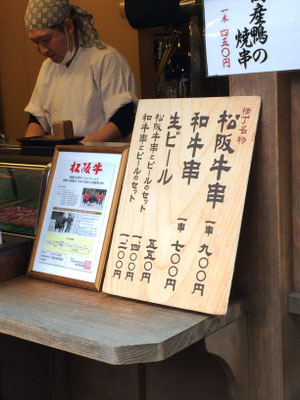 産鴨の
焼串
一本 四五〇円
横丁名物
松阪牛串 一串 九〇〇円
和牛串 一串 七〇〇円
生ビール 五五〇円
松阪牛串とビールのセット 一四〇〇円
和牛串とビールのセット 一二〇〇円
松阪牛